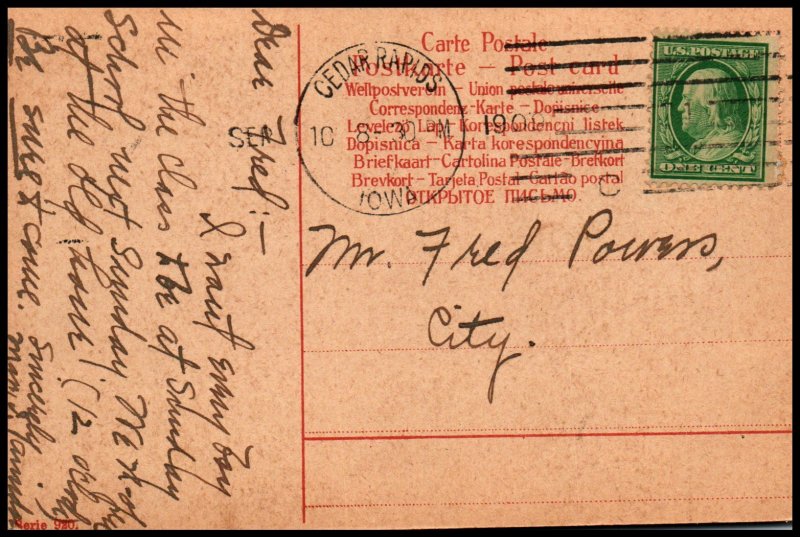 Carte Postale
Postkarte – Post card
Weltpostverein – Union postale universelle
Correspondenz-Karte – Dopisnice
Levelező-Lap – Korespondencni listek
Dopisnica – Karta korespondencyjna
Briefkaart – Cartolina Postale – Brefkort
Brevkort – Tarjeta Postal – Cartão postal
ОТКРЫТОЕ ПИСЬМО.
CEDAR RAPIDS
SEP 10 8 30 M
IOWA
U.S. POSTAGE
ONE CENT
Mr. Fred Powers,
City.
Dear Fred:—
I want every boy
in the class to be at Sunday
School next Sunday
at the old hour (12
Be sure & come. Sincerely,
Serie 920.